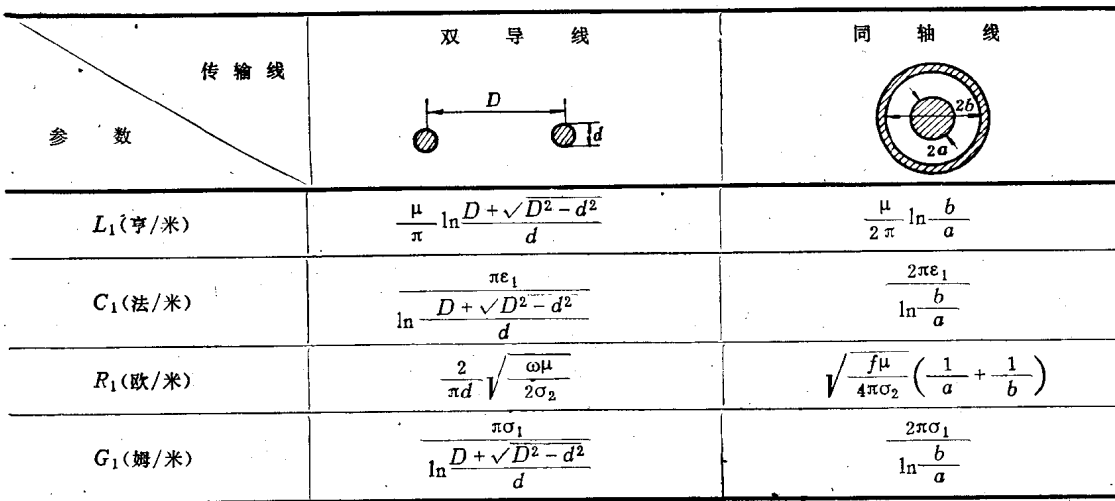 传输线
参数
双导线
D
d
同轴线
2b
2a
L₁(亨/米)
μ/π ln (D + √(D² − d²))/d
μ/2π ln b/a
C₁(法/米)
πε₁/(ln (D + √(D² − d²))/d)
2πε₁/(ln b/a)
R₁(欧/米)
2/πd √(ωμ/2σ₂)
√(fμ/4πσ₂) (1/a + 1/b)
G₁(姆/米)
πσ₁/(ln (D + √(D² − d²))/d)
2πσ₁/(ln b/a)